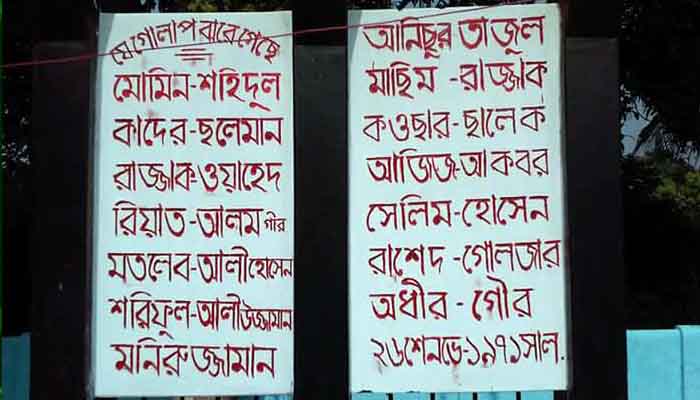 যে গোলাপ ঝরে গেছে
মোমিন-শহিদুল
কাদের-ছলেমান
রাজ্জাক ওয়াহেদ
রিয়াত-আলম গীর
মতলেব-আলী হোসেন
শরিফুল-আলী উজ্জামান
মনিরুজ্জামান
আনিছুর তাজুল
মাছিম - রাজ্জাক
কওছার-ছালেক
আজিজ-আকবর
সেলিম-হোসেন
রাশেদ-গোলজার
অধীর - গৌর
২৬শে নভে-১৯৭১ সাল.